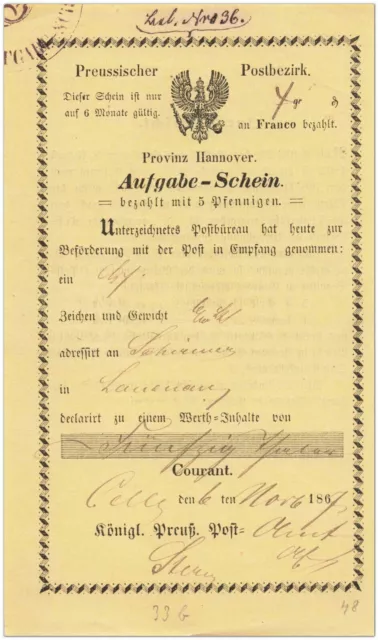 Lauf. Nro 36.
Preussischer Postbezirk.
Dieser Schein ist nur
auf 6 Monate gültig.
4 gr
an Franco bezahlt.
Provinz Hannover.
Aufgabe-Schein.
bezahlt mit 5 Pfennigen.
Unterzeichnetes Postbüreau hat heute zur
Beförderung mit der Post in Empfang genommen:
ein
Zeichen und Gewicht
adressirt an
in Lauenau
declarirt zu einem Werth-Inhalte von
Fünfzig Thaler
Courant.
Celle den 6 ten Novb 1867
Königl. Preuß. Post-Amt
33 b
48